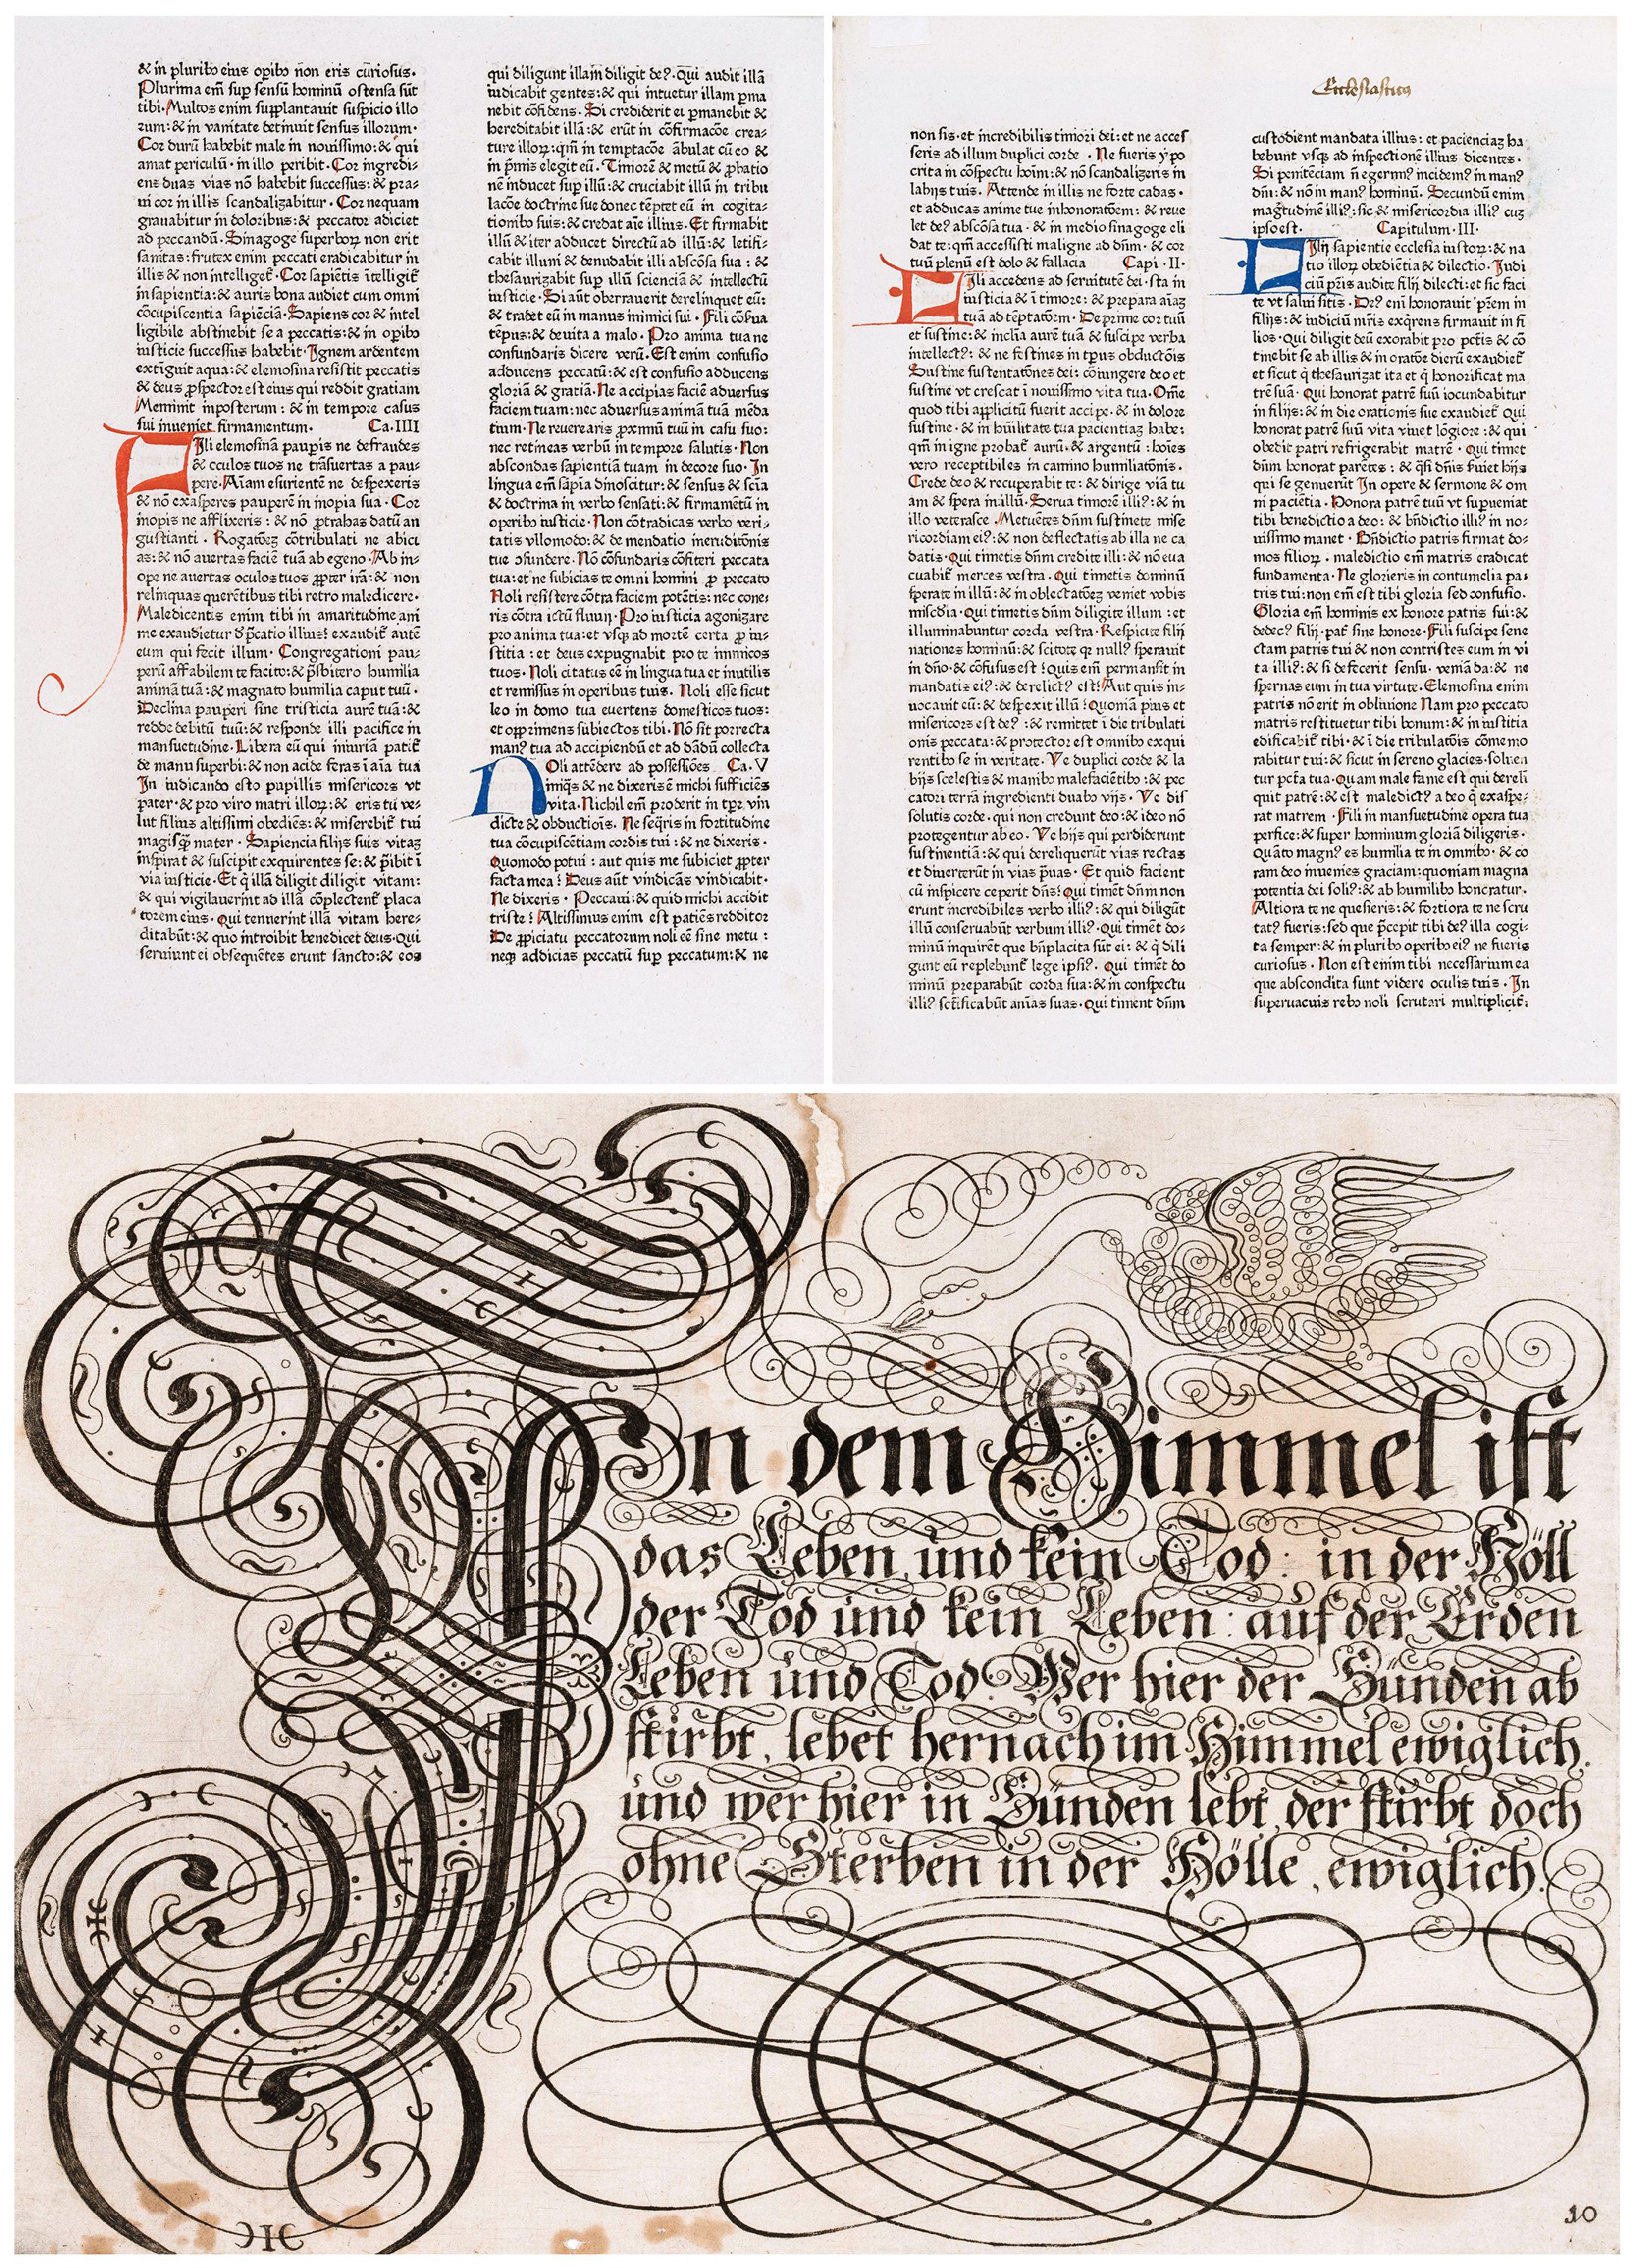 & in pluribꝰ eius opibꝰ non eris curiosus.
Plurima em̄ sup sensū hominū ostensa sūt
tibi. Multos enim supplantauit suspicio illo
rum: & in vanitate detinuit sensus illorum.
Cor durū habebit male in nouissimo: & qui
amat periculū. in illo peribit. Cor ingredi-
ens duas vias nō habebit successus: & pra-
ui cor in illis scandalizabitur. Cor nequam
grauabitur in doloribus: & peccator adiciet
ad peccandū. Sinagoge superboꝝ non erit
sanitas: frutex enim peccati eradicabitur in
illis & non intelliget͛. Cor sapiētis ītelligit͛
in sapientia: & auris bona audiet cum omni
cōcupiscentia sapiēciā. Sapiens cor & intel
ligibile abstinebit se a peccatis: & in opibꝰ
iusticie successus habebit. Ignem ardentem
extīguit aqua: & elemosina resistit peccatis
& deus ꝓspector est eius qui reddit gratiam
Meminit inposterum: & in tempore casus
sui inueniet firmamentum. Ca. IIII
FIli elemosinā pauꝑis ne defraudes
& occulos tuos ne trāsuertas a pau-
pere. Aīam esurientē ne despexeris
& nō exasperes pauperē in inopia sua. Cor
inopis ne afflixeris: & nō ꝓtrahas datū an
gustianti. Rogatōeꝫ cōtribulati ne abici
as: & nō auertas faciē tuā ab egeno. Ab in-
ope ne auertas oculos tuos ꝓpter irā: & non
relinquas querētibus tibi retro maledicere.
Maledicentis enim tibi in amaritudine ani
me exaudietur dꝑcatio illius: exaudit͛ autē
eum qui fecit illum. Congregationi pau-
perū affabilem te facito: & ꝑsbitero humilia
animā tuā: & magnato humilia caput tuū.
Declina pauperi sine tristicia aurē tuā: &
redde debitū tuū: & responde illi pacifice in
mansuetudine. Libera eū qui iniuriā patit͛
de manu superbi: & non acide feras ī aīa tua
In iudicando esto pupillis misericors vt
pater. & pro viro matri illoꝝ: & eris tū ve-
lut filius altissimi obediēs: & miserebit͛ tui
magisꝗ̄ mater. Sapiencia filijs suis vitaꝫ
inspirat & suscipit exquirentes se: & p̄ibit ī
via iusticie. Et q̇ illā diligit diligit vitam:
& qui vigilauerint ad illā cōplectent͛ placa
torem eius. Qui tenuerint illā vitam here-
ditabūt: & quo introibit benedicet deus. Qui
seruiunt ei obsequētes erunt sancto: & eos
qui diligunt illam diligit deꝰ. Qui audit illā
iudicabit gentes: & qui intuetur illam ꝑma
nebit cōfidens. Si crediderit ei ꝑmanebit &
hereditabit illā: & erūt in cōfirmacōe crea-
ture illoꝝ: qm̄ in temptacōe ābulat cū eo &
in p̄mis elegit eū. Timorē & metū & ꝓbatio
nē inducet sup illū: & cruciabit illū in tribu
lacōe doctrine sue donec tēptet eū in cogita-
tionibꝰ suis: & credat aīe illius. Et firmabit
illū & iter adducet directū ad illū: & letifi-
cabit illum & denudabit illi abscōsa sua: &
thesaurizabit sup illū scienciā & intellectū
iusticie. Si aūt oberrauerit derelinquet eū:
& tradet eū in manus inimici sui. Fili cōẜua
tēpus: & deuita a malo. Pro anima tua ne
confundaris dicere verū. Est enim confusio
adducens peccatū: & est confusio adducens
gloriā & gratiā. Ne accipias faciē aduersus
faciem tuam: nec aduersus animā tuā mēda
tium. Ne reuerearis ꝓxīmū tuū in casu suo:
nec retineas verbū in tempore salutis. Non
abscondas sapientiā tuam in decore suo. In
lingua em̄ sapīa dinoscitur: & sensus & sciā
& doctrina in verbo sensati: & firmamētū in
operibꝰ iusticie. Non cōtradicas verbo veri-
tatis vllomodo: & de mendatio ineruditōnis
tue ↄfundere. Nō cōfundaris cōfiteri peccata
tua: et ne subicias te omni homini ꝓ peccato
Noli resistere cōtra faciem potētis: nec cone-
ris cōtra ictū fluuij. Pro iusticia agonizare
pro anima tua: et vsqꝫ ad mortē certa ꝓ iu-
stitia: et deus expugnabit pro te inimicos
tuos. Noli citatus eē in lingua tua et inutilis
et remissus in operibus tuis. Noli esse sicut
leo in domo tua euertens domesticos tuos:
et opprimens subiectos tibi. Nō sit porrecta
manꝰ tua ad accipiendū et ad dādū collecta
NOli attēdere ad possessiōes Ca. V
iniqͣs & ne dixeris ē michi sufficiēs
vita. Nichil em̄ proderit in tpꝛe vin
dicte & obductiōīs. Ne seqͣris in fortitudine
tua cōcupiscētiam cordis tui: & ne dixeris.
Quomodo potui: aut quis me subiciet ꝓpter
facta mea: Deus aūt vindicās vindicabit.
Ne dixeris. Peccaui: & quid michi accidit
triste: Altissimus enim est patiēs redditor
De ꝓpiciatu peccatorum noli eē sine metu:
neqꝫ addicias peccatū sup peccatum: & ne
Ecclesiasticꝰ
non sis. et incredibilis timori dei: et ne acces
seris ad illum duplici corde. Ne fueris ypo
crita in cōspectu hoīm: & nō scandalizeris in
labijs tuis. Attende in illis ne forte cadas.
et adducas anime tue inhonoratōem: & reue
let deꝰ abscōsa tua. & in medio sinagoge eli
dat te: qm̄ accessisti maligne ad dn̄m. & cor
tuū plenū est dolo & fallacia Capi. II.
FIli accedens ad seruitutē dei. sta in
iusticia & ī timore: & prepara aīaꝫ
tuā ad tēptatōm̄. Deprime cor tuū
et sustine: & inclīa aurē tuā & suscipe verba
intellectꝰ: & ne festines in tpus obductōis
Sustine sustentatōnes dei: cōiungere deo et
sustine vt crescat ī nouissimo vita tua. Om̄e
quod tibi applicitū fuerit accipe. & in dolore
sustine. & in hūilitate tua pacientiaꝫ habe:
qm̄ in igne probat͛ aurū: & argentū: hoīes
vero receptibiles in camino humiliatōnis.
Crede deo & recuperabit te: & dirige viā tu
am & spera in illū. Serua timorē illiꝰ: & in
illo veterasce. Metuētes dn̄m sustinete mise
ricordiam eiꝰ: & non deflectatis ab illa ne ca
datis. Qui timetis dn̄m credite illi: & nō eua
cuabit͛ merces vestra. Qui timetis dominū
sperate in illū: & in oblectatōeꝫ veniet vobis
misc̄dia. Qui timetis dn̄m diligite illum: et
illuminabuntur corda vestra. Respicite filij
nationes hominū: & scitote qꝫ nullꝰ sperauit
in dn̄o. & cōfusus est: Quis em̄ permansit in
mandatis eiꝰ: & derelictꝰ est: Aut quis in-
uocauit eū: & despexit illū: Quoniā pius et
misericors est deꝰ: & remittet ī die tribulati
onis peccata: & protector est omnibꝰ exqui
rentibꝰ se in veritate. Ve duplici corde & la
bijs scelestis & manibꝰ malefacientibꝰ: & pec
catori terrā ingredienti duabꝰ vijs. Ve dis
solutis corde. qui non credunt deo: & ideo nō
protegentur ab eo. Ve hijs qui perdiderunt
sustinentiā: & qui dereliquerūt vias rectas
et diuerterūt in vias ꝑuas. Et quid facient
cū inspicere ceperit dn̄s: Qui timēt dn̄m non
erunt incredibiles verbo illiꝰ: & qui diligūt
illū conseruabūt verbum illiꝰ. Qui timēt do-
minū inquirēt que bn̄placita sūt ei: & q̇ dili
gunt eū replebunt͛ lege ipsiꝰ. Qui timēt do
minū preparabūt corda sua: & in conspectu
illiꝰ scificabūt anīas suas. Qui timent dn̄m
custodient mandata illius: et pacienciaꝫ ha
bebunt vsqꝫ ad inspectionē illius dicentes.
Si penitēciam n̄ egerimꝰ incidemꝰ in manꝰ
dn̄i: & nō in manꝰ hominū. Secundū enim
magtudinē illiꝰ: sic & misericordia illiꝰ cuꝫ
ipso est. Capitulum. III.
FIlij sapientie ecclesia iustoꝝ: & na
tio illoꝝ obediētia & dilectio. Iudi
ciū pr̄is audite filij dilecti: et sic faci
te vt salui sitis. Deꝰ em̄ honorauit pr̄em in
filijs: & iudiciū mr̄is exq̇rens firmauit in fi
lios. Qui diligit deū exorabit pro pctīs & cō
tinebit se ab illis & in oratōe dierū exaudiet͛
et sicut q̇ thesaurizat ita et q̇ honorificat ma
trē suā. Qui honorat patrē suū iocundabitur
in filijs: & in die orationis sue exaudiet͛ Qui
honorat patrē suū vita viuet lōgiore: & qui
obedit patri refrigerabit matrē. Qui timet
dn̄m honorat parētes: & qͣsi dn̄is ẜuiet hijs
qui se genuerūt In opere & sermone & om
ni pacīetia. Honora patrē tuū vt supueniat
tibi benedictio a deo: & bn̄dictio illiꝰ in no-
uissimo manet. Bn̄dictio patris firmat do-
mos filioꝝ. maledictio em̄ matris eradicat
fundamenta. Ne glorieris in contumelia pa-
tris tui: non em̄ est tibi gloria sed confusio.
Gloria em̄ hominis ex honore patris sui: &
dedecꝰ filij. pat͛ sine honore. Fili suscipe sene
ctam patris tui & non contristes eum in vi
ta illiꝰ: & si defecerit sensu. veniā da: & ne
spernas eum in tua virtute. Elemosina enim
patris nō erit in obliuione Nam pro peccato
matris restituetur tibi bonum: & in iustitia
edificabit͛ tibi. & ī die tribulatōis cōmemo
rabitur tui: & sicut in sereno glacies. soluen
tur pctā tua. Quam male fame est qui dereli
quit patrē: & est maledictꝰ a deo q̇ exaspe-
rat matrem. Fili in mansuetudine opera tua
perfice: & super hominum gloriā diligeris.
Quāto magnꝰ es humilia te in omnibꝰ. & co
ram deo inuenies graciam: quoniam magna
potentia dei soliꝰ: & ab humilibꝰ honoratur.
Altiora te ne quesieris: & fortiora te ne scru
tatꝰ fueris: sed que p̄cepit tibi deꝰ illa cogi-
ta semper: & in pluribꝰ operibꝰ eiꝰ ne fueris
curiosus. Non est enim tibi necessarium ea
que abscondita sunt videre oculis tuis. In
superuacuis rebꝰ noli scrutari multiplicit͛:
In dem Himmel ist
das Leben, und kein Tod: in der Höll
der Tod und kein Leben: auf der Erden
Leben und Tod. Wer hier der Sünden ab
stirbt, lebet hernach im Himmel ewiglich.
und wer hier in Sünden lebt, der stirbt doch
ohne Sterben in der Hölle, ewiglich.
10